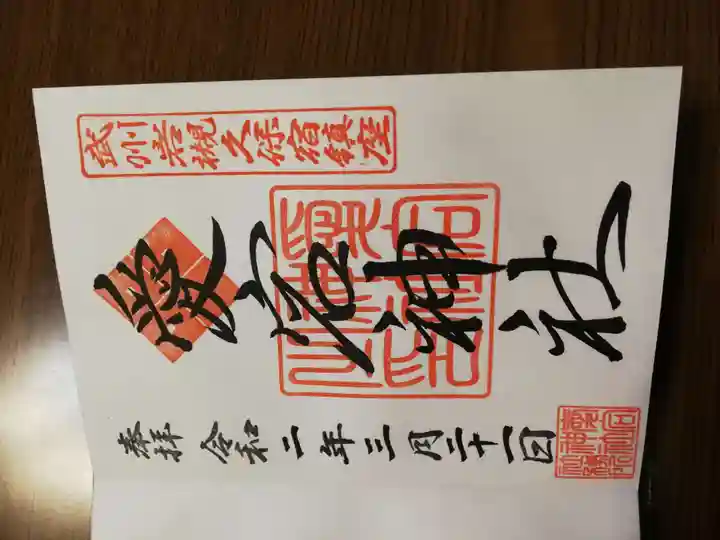 武州岩槻久保宿鎮座
愛宕神社
奉拝 令和二年三月二十一日